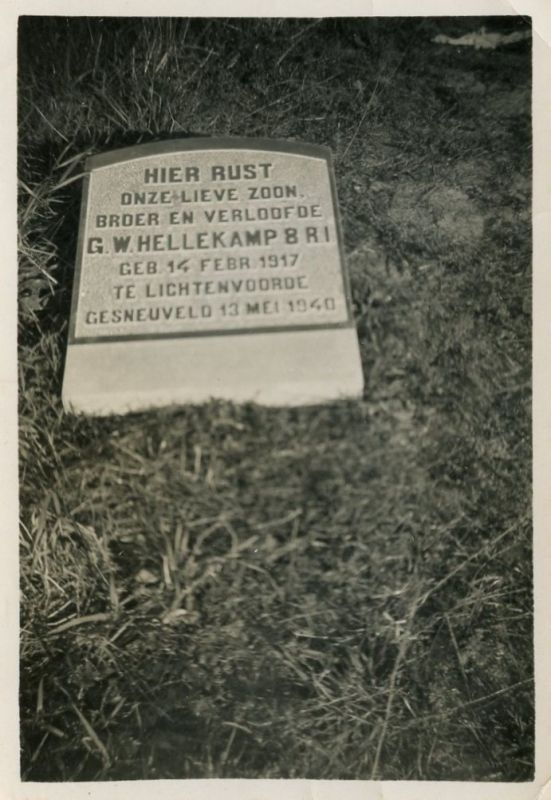 HIER RUST
ONZE LIEVE ZOON,
BROER EN VERLOOFDE
G.W. HELLEKAMP 8 R I
GEB. 14 FEBR. 1917
TE LICHTENVOORDE
GESNEUVELD 13 MEI 1940